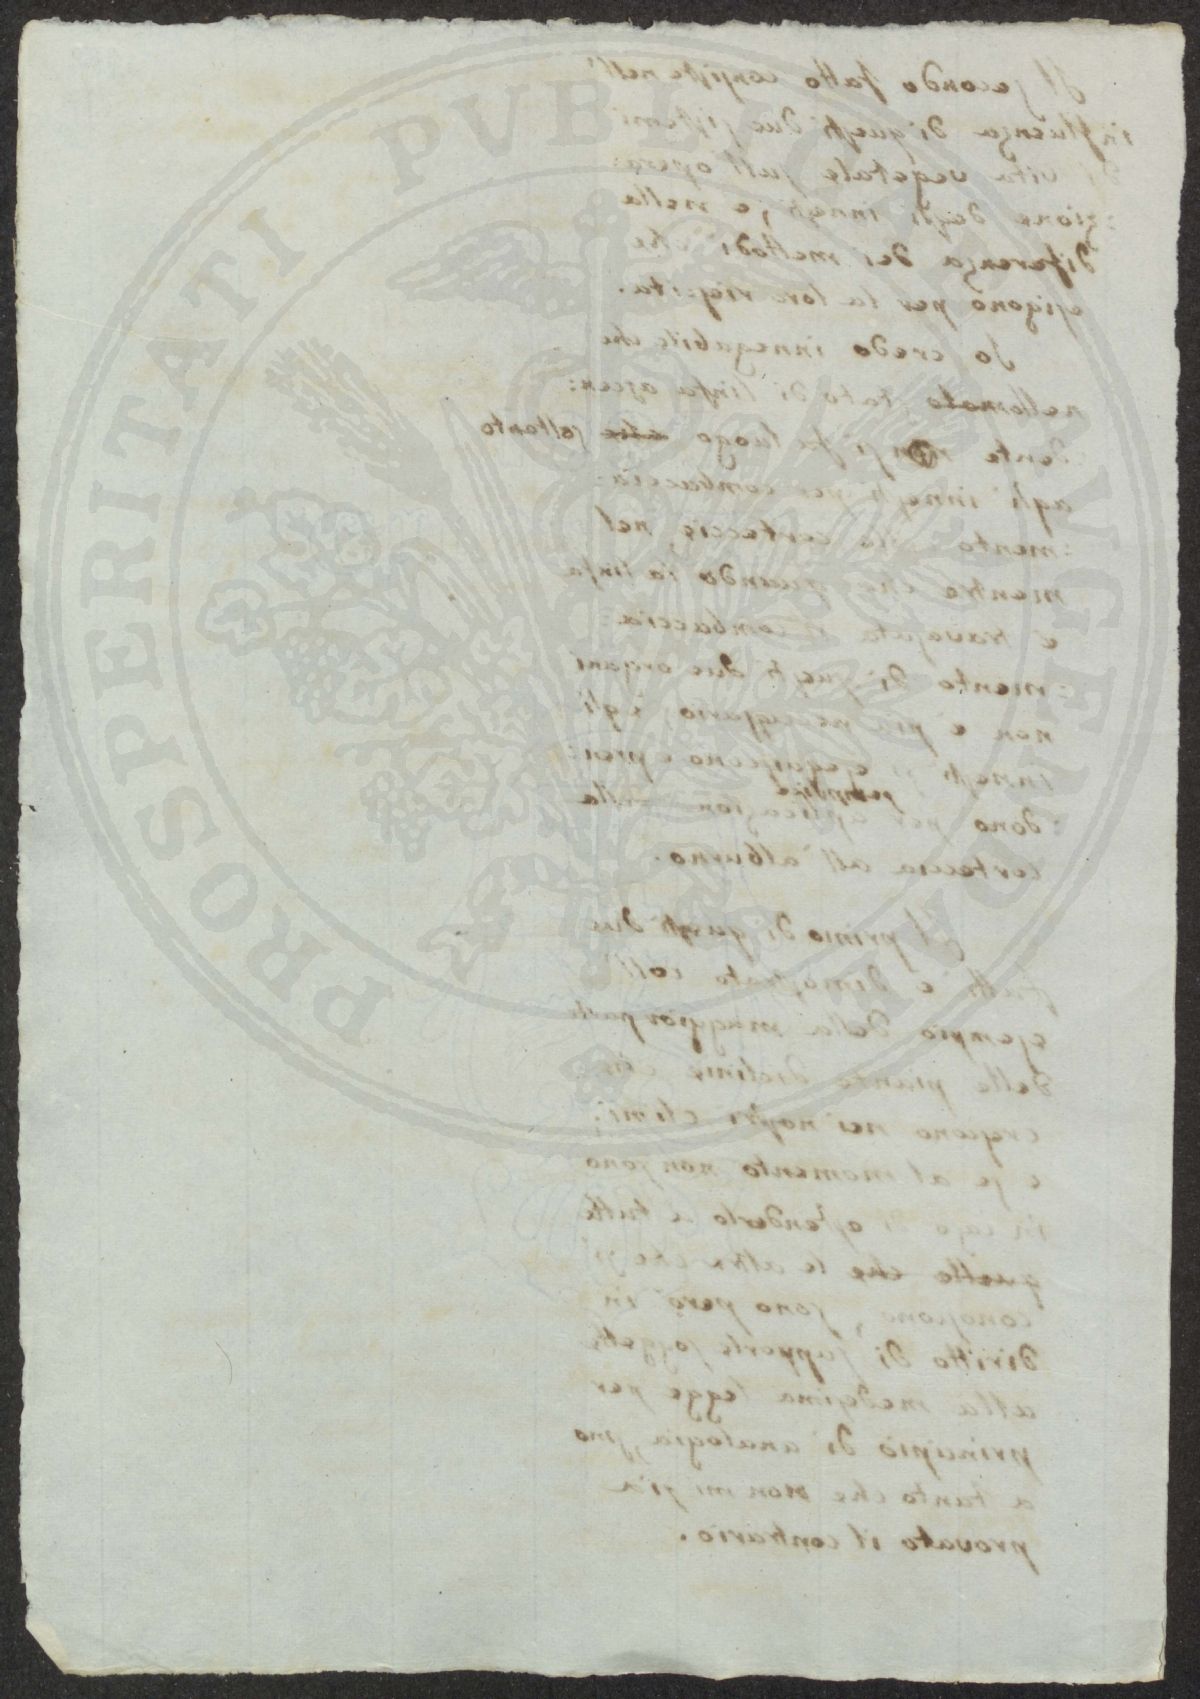 Il secondo fatto consiste nell'
influenza di questi due sistemi
di vita vegetale sull'opera:
:zione degli innesti, e nella
diferenza dei mettodi che
esigono per la loro riuscita.
Io credo innegabile che
nello stato di linfa ascen:
:dente non si fa luogo che soltanto
agli innesti per combaccia:
:mento della corteccia, nel
mentre che quando la linfa
è travasata il combaccia:
:mento di questi due organi
non è più necessario, e gli
innesti si eseguiscono e pren:
:dono per semplice
aplicazione della
corteccia all'alburno.
Il primo di questi due
fatti è dimostrato coll'
esempio della maggior parte
delle piante che
crescono nei nostri climi;
e se al momento non sono
in caso di estenderlo a tutte
quelle che le altre che si
conoscono, sono però in
diritto di supporle soggette
alla medesima legge per
principio di analogia, fino
a tanto che non mi sia
provato il contrario.
PROSPERITATI PUBLICAE AUGENDAE